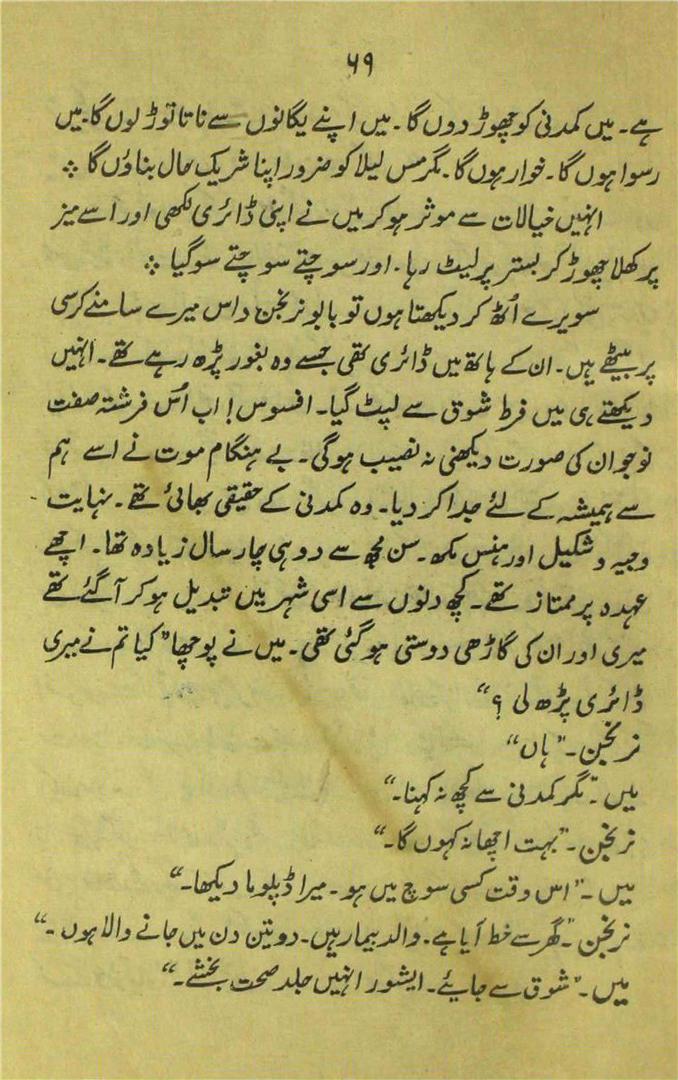 ۶۹
ہے۔ میں کمدنی کو چھوڑ دوں گا۔ میں اپنے یگانوں سے ناتا توڑ لوں گا۔ میں
رسوا ہوں گا۔ خوار ہوں گا۔ مگر مس لیلا کو ضرور اپنا شریک حال بناؤں گا ⁘
انہیں خیالات سے موثر ہو کر میں نے اپنی ڈائری لکھی اور اسے میز
پر کھلا چھوڑ کر بستر پر لیٹ رہا۔ اور سوچتے سوچتے سو گیا ⁘
سویرے اُٹھ کر دیکھتا ہوں تو بابو نرنجن داس میرے سامنے کرسی
پر بیٹھے ہیں۔ ان کے ہاتھ میں ڈائری تھی جسے وہ بغور پڑھ رہے تھے۔ انہیں
دیکھتے ہی میں فرط شوق سے لپٹ گیا۔ افسوس! اب اُس فرشتہ صفت
نوجوان کی صورت دیکھنی نہ نصیب ہوگی۔ بے ہنگام موت نے اسے ہم
سے ہمیشہ کے لئے جدا کر دیا۔ وہ کمدنی کے حقیقی بھائی تھے۔ نہایت
وجیہ و شکیل اور ہنس مکھ۔ سن مجھ سے دو ہی چار سال زیادہ تھا۔ اچھے
عہدہ پر ممتاز تھے۔ کچھ دنوں سے اسی شہر میں تبدیل ہو کر آ گئے تھے
میری اور ان کی گاڑھی دوستی ہو گئی تھی۔ میں نے پوچھا "کیا تم نے میری
ڈائری پڑھ لی ؟"
نرنجن۔ "ہاں"
میں۔ "مگر کمدنی سے کچھ نہ کہنا۔"
نرنجن۔ "بہت اچھا نہ کہوں گا۔"
میں۔ "اس وقت کسی سوچ میں ہو۔ میرا ڈپلوما دیکھا۔"
نرنجن "۔ گھر سے خط آیا ہے۔ والد بیمار ہیں۔ دو تین دن میں جانے والا ہوں۔"
میں۔ "شوق سے جایئے۔ ایشور انہیں جلد صحت بخشے۔"